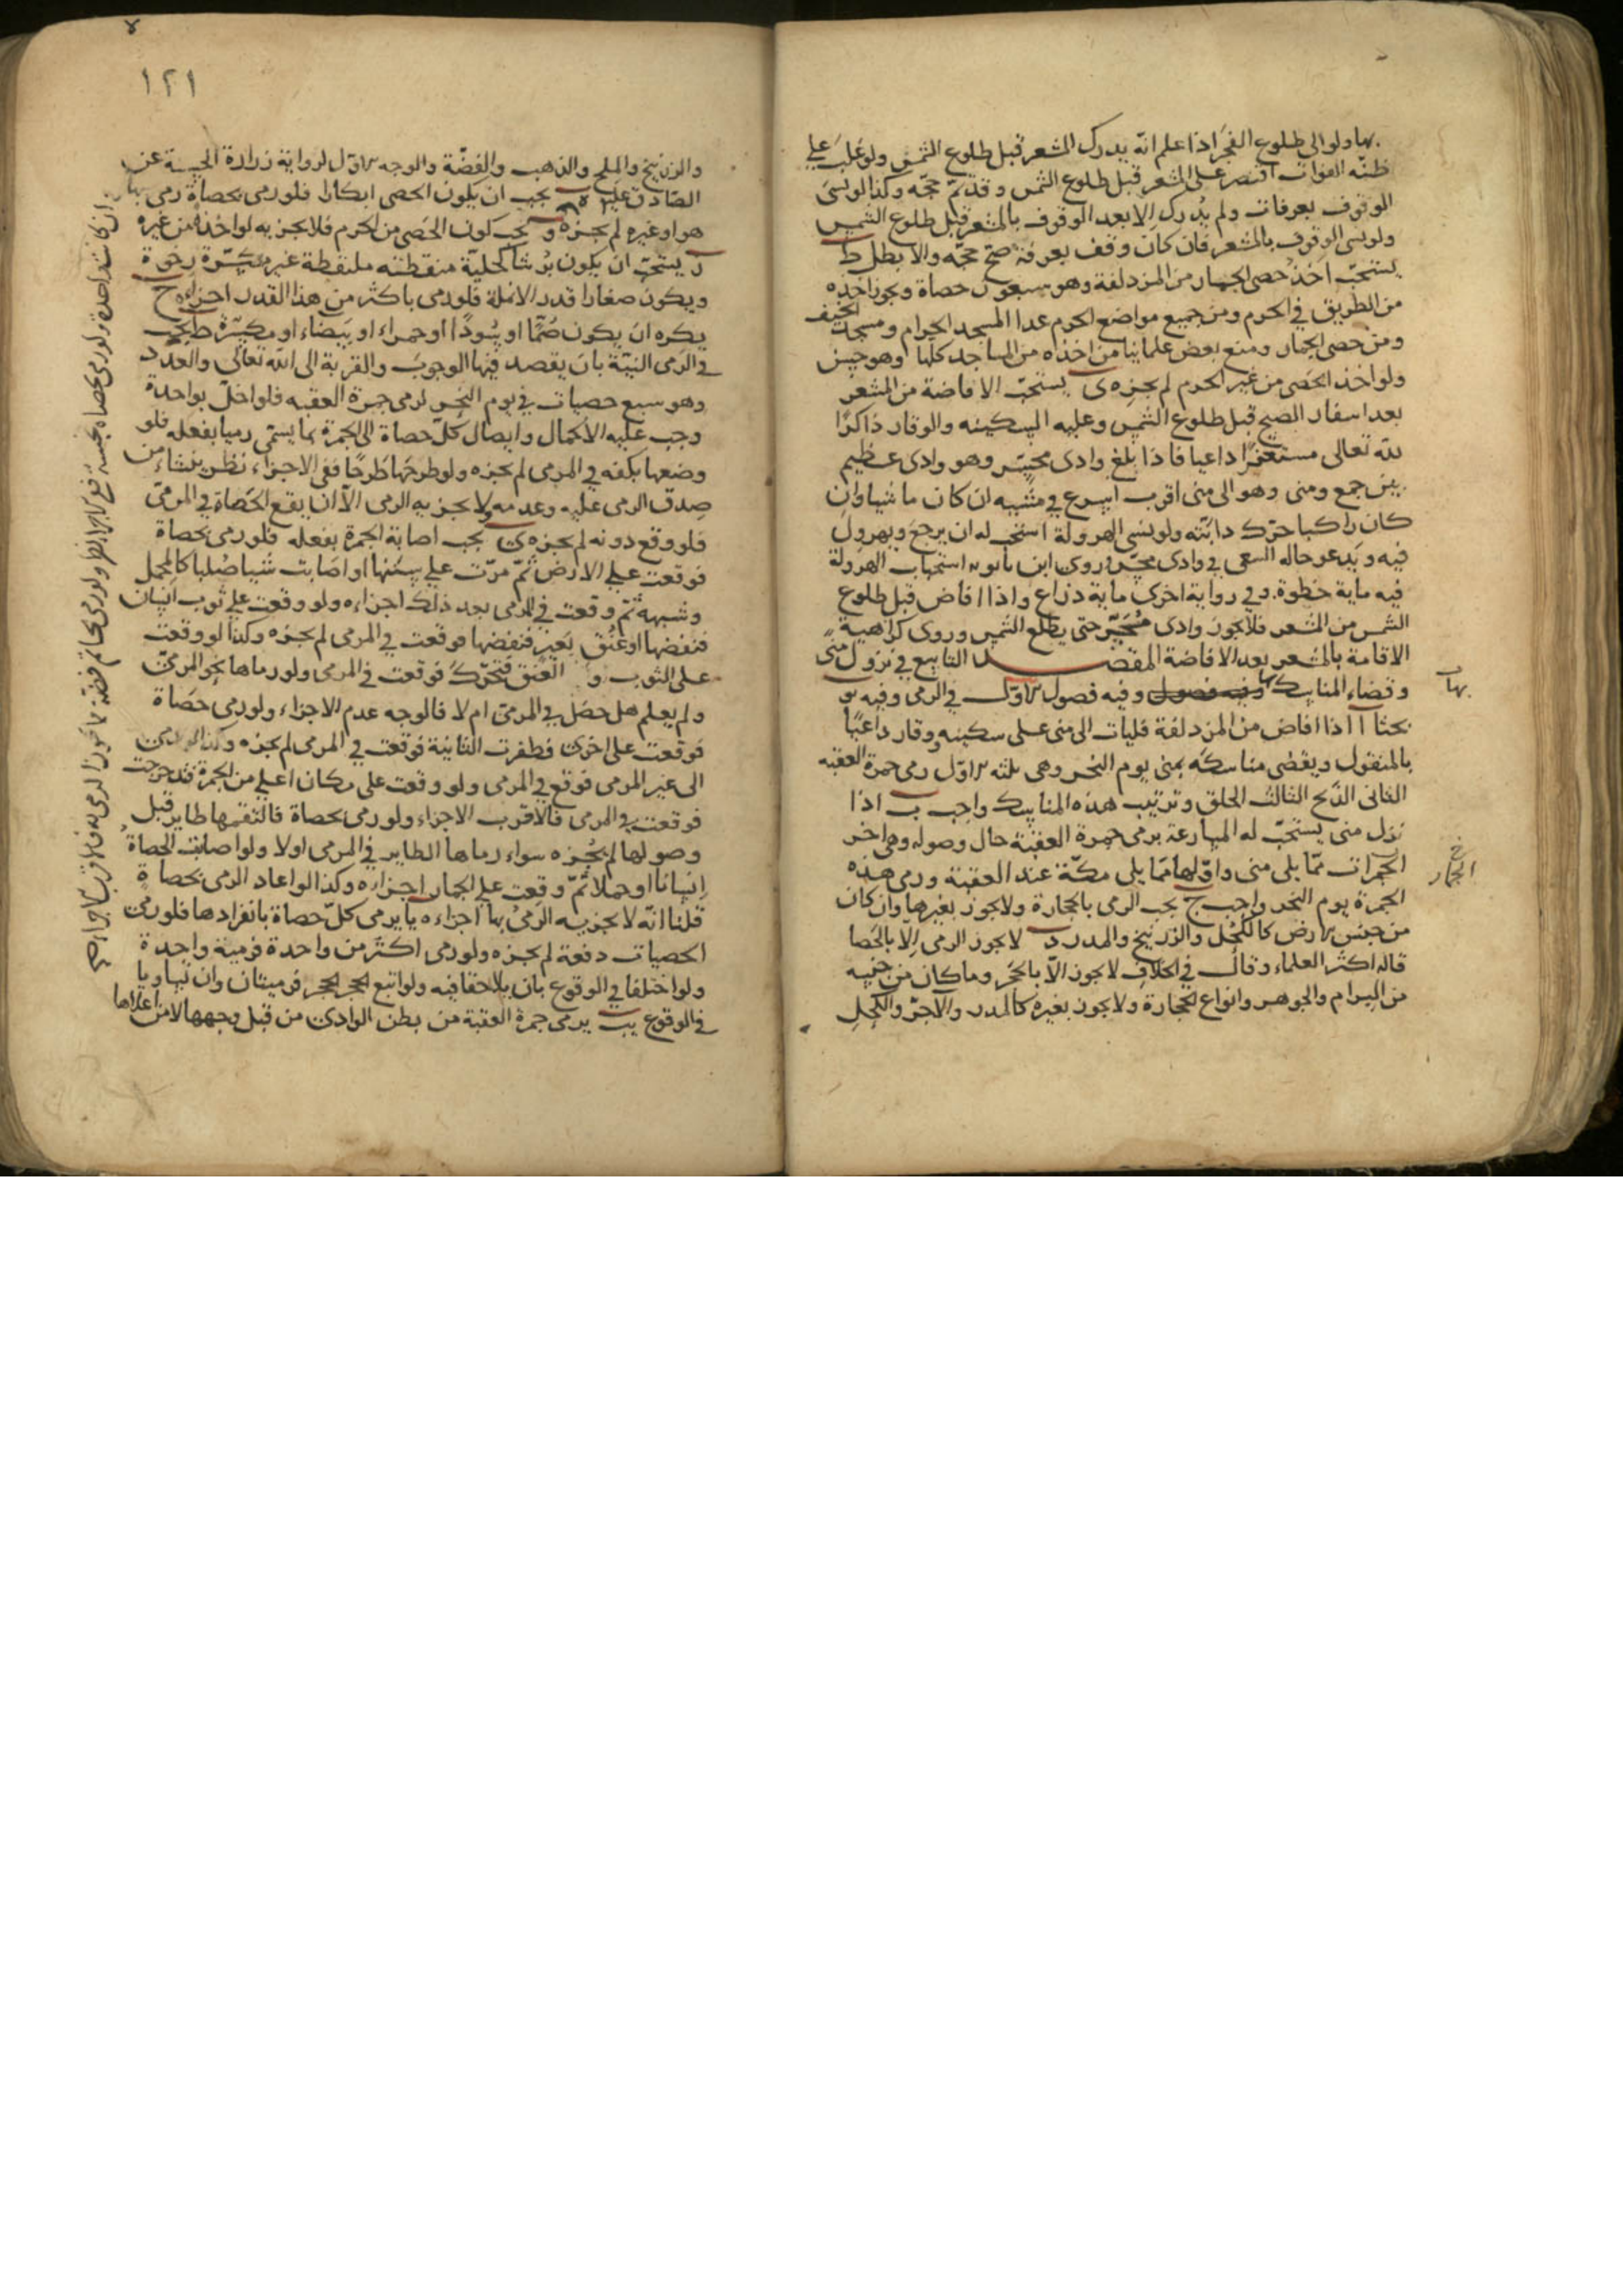 بها ولو الى طلوع الفجر اذا علم انه يدرك المشعر قبل طلوع الشمس ولو غلب على
ظنه الفوات اقتصر على المشعر قبل طلوع الشمس وقد تم حجه وكذا لو نسى
الوقوف بعرفات ولم يدرك الا بعد الوقوف بالمشعر قبل طلوع الشمس
ولو نسى الوقوف بالمشعر فان كان وقف بعرفة صح حجه والا بطل ط
يستحب اخذ حصى الجمار من المزدلفة وهو سبعون حصاة ويجوز اخذه
من الطريق في الحرم ومن جميع مواضع الحرم عدا المسجد الحرام ومسجد الخيف
ومن حصى الجمار ومنع بعض علمائنا من اخذه من المساجد كلها وهو حسن
ولو اخذ الحصى من غير الحرم لم يجزه ى يستحب الافاضة من المشعر
بعد اسفار الصبح قبل طلوع الشمس وعليه السكينه والوقار ذاكرا
لله تعالى مستغفرا داعيا فاذا بلغ وادى محسر وهو وادى عظيم
بين جمع ومنى وهو الى منى اقرب اسرع في مشيه ان كان ماشيا وان
كان راكبا حرك دابته ولو نسى الهرولة استحب له ان يرجع ويهرول
فيه ويدعو حالة السعى في وادى محسر وروى ابن بابويه استحباب الهرولة
فيه ماية خطوة وفي رواية اخرى ماية ذراع واذا افاض قبل طلوع
الشمس من المشعر فلا يجوز وادى محسر حتى يطلع الشمس وروى كراهية
الاقامة بالمشعر بعد الافاضة المقصد التاسع في نزول منى
وقضاء المناسك بها وفيه فصول وفيه فصول الاول في الرمى وفيه يو
بحثا ا اذا افاض من المزدلفة فليات الى منى على سكينه ووقار داعيا
بالمنقول ويقضى مناسكه بمنى يوم النحر وهى ثلثه الاول رمى جمرة العقبه
الثانى الذبح الثالث الحلق وترتيب هذه المناسك واجب ب اذا
نزل منى يستحب له المبارعة برمى جمرة العقبة حال وصوله وهى اخر
الجمرات مما يلى منى واولها مما يلى مكة عند العقبة ورمى هذه
الجمرة يوم النحر واجب ج يجب الرمى بالحجارة ولا يجوز بغيرها وان كان
من جنس الارض كالكحل والزرنيخ والمدر د لا يجوز الرمى الا بالحصا
قاله اكثر العلماء وقال في الخلاف لا يجوز الا بالحجر وما كان من جنسه
من البرام والجوهر وانواع الحجارة ولا يجوز بغيره كالمدر والاجر والكحل
بها
خ
الجمار
١٢١
والزرنيخ والملح والذهب والفضة والوجه الاول لرواية زرارة الحسنة عن
الصادق عليه السلام ه يجب ان يكون الحصى ابكارا فلو رمى بحصاة رمى بها
هو او غيره لم يجزه و يجب كون الحصى من الحرم فلا يجزيه لو اخذه من غيره
ز يستحب ان يكون برشا كحلية منقطة ملتقطة غير مكسرة رخوة
ويكون صغارا قدر الانملة فلو رمى باكثر من هذا القدر اجزاه ح
يكره ان يكون صما او سودا او حمراء او بيضاء او مكسرة ط يجب
في الرمى النية بان يقصد فيها الوجوب والقربة الى الله تعالى والعدد
وهو سبع حصيات في يوم النحر لرمى جمرة العقبه فلو اخل بواحدة
وجب عليه الاكمال وايصال كل حصاة الى الجمرة بما يسمى رميا بفعله فلو
وضعها بكفه في المرمى لم يجزه ولو طرحها طرحا ففى الاجزاء نظر ينشاء من
صدق الرمى عليه وعدمه ولا يجزيه الرمى الا ان يقع الحصاة في المرمى
فلو وقع دونه لم يجزه ى يجب اصابة الجمرة بفعله فلو رمى بحصاة
فوقعت على الارض ثم مرت على سننها او اصابت شيا صلبا كالمحمل
وشبهه ثم وقعت في المرمى بعد ذلك اجزاءه ولو وقعت على ثوب انسان
فنفضها او عنق بعير فنفضها فوقعت في المرمى لم يجزه وكذا لو وقعت
على الثوب و العنق فتحرك فوقعت في المرمى ولو رماها نحو المرمى
ولم يعلم هل حصل في المرمى ام لا فالوجه عدم الاجزاء ولو رمى حصاة
فوقعت على اخرى فطفرت الثانية فوقعت في المرمى لم يجزه وكذا لو رمى
الى غير المرمى فوقع في المرمى ولو وقعت على مكان اعلى من الجمرة فتدحرجت
فوقعت في المرمى فالاقرب الاجزاء ولو رمى بحصاة فالتقمها طاير قبل
وصولها لم يجزه سواء رماها الطاير في المرمى اولا ولو اصابت الحصاة
انسانا او جملا ثم وقعت على الجمار اجزاءه وكذا لو اعاد الرمى بحصاة
قلنا انه لا يجزيه الرمى بها اجزاءه يا يرمى كل حصاة بانفرادها فلو رمى
الحصيات دفعة لم يجزه ولو رمى اكثر من واحدة فرمية واحدة
ولو اختلفا في الوقوع بان يلاحقا فيه ولو اتبع الحجر الحجر فرميتان وان تساويا
في الوقوع يب يرمى جمرة العقبة من بطن الوادى من قبل وجهها لا من اعلاها
ان كانت واحدة ولو رمى بحصاة نجسة ففى الاجزاء نظر ولو رمى بخاتم فضة